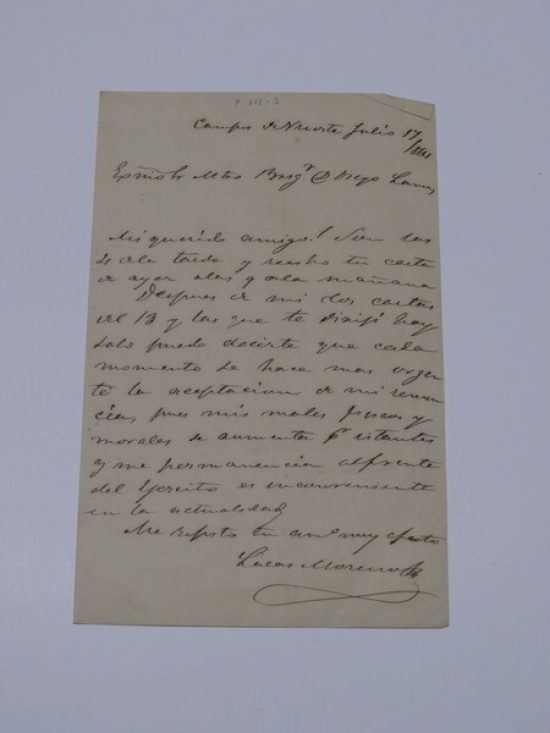 Julio 17/864
Exmo Sr Mtro Brigr D Diego Lamas
Mi querido amigo! Son las
4 de la tarde y recibo tu carta
de ayer a las 9 de la mañana
Despues de mis dos cartas
del 13 y las que te dirijí hoy
solo puedo decirte que cada
momento se hace mas urjen
te la aceptacion de mi renun
cia, pues mis males fisicos y
morales se aumentan pr istantes
y me permanencia al frente
del Ejercito es inconveniente
en la actualidad
Me repito tu amo muy afecto
Lucas Moreno